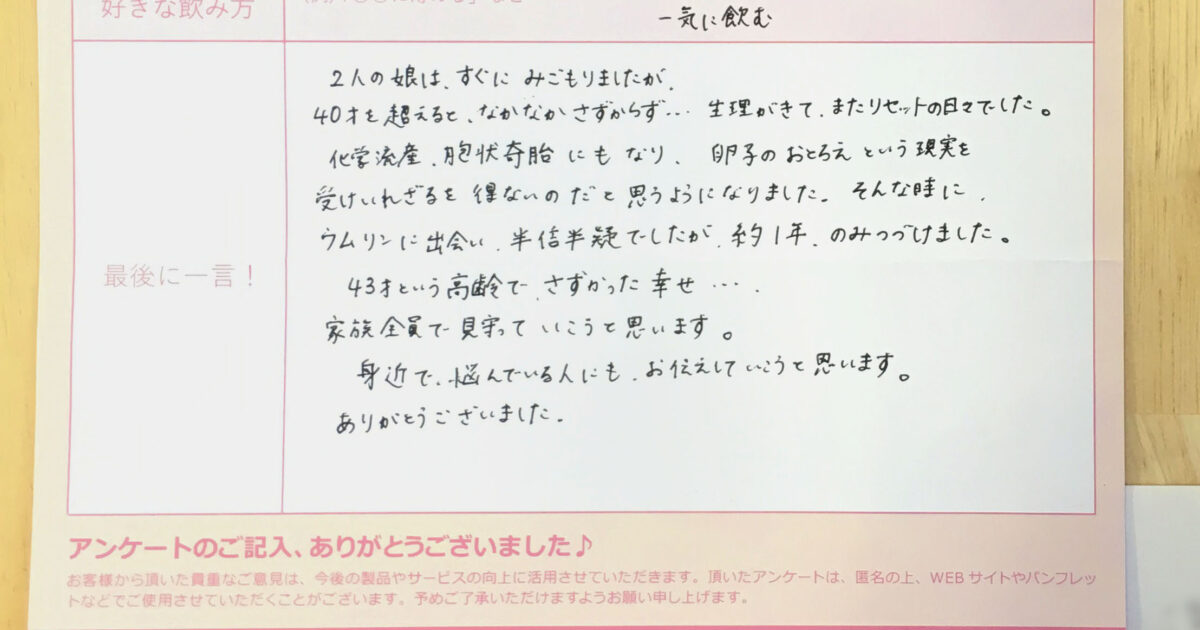 好きな飲み方
一気に飲む
最後に一言！
2人の娘は、すぐに みごもりましたが、
40才を超えると、なかなか さずからず… 生理がきて、またリセットの日々でした。
化学流産、胞状奇胎 にも なり、 卵子の おとろえ という 現実を
受けいれざるを 得ないの だ と 思うようになりました。 そんな時に、
ウムリンに 出会い、半信半疑でしたが、約1年、のみつづけました。
43才という高齢で、さずかった 幸せ …、
家族全員で 見守って いこうと思います。
身近で、悩んでいる人にも、お伝えして いこうと 思います。
ありがとうございました。
アンケートのご記入、ありがとうございました♪
お客様から頂いた貴重なご意見は、今後の製品やサービスの向上に活用させていただきます。頂いたアンケートは、匿名の上、WEBサイトやパンフレッ
トなどでご使用させていただくことがございます。予めご了承いただけますようお願い申し上げます。